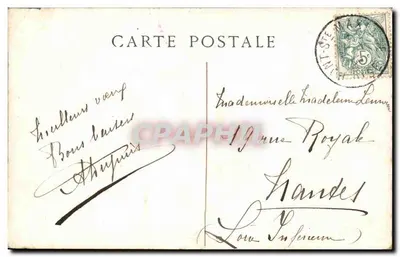 CARTE POSTALE
PONT-STE-MAX
5
Meilleurs vœux
Bons baisers
ADupuis
Mademoiselle Madeleine
19 rue Royale
Nantes
(Loire Inférieure)
CPARAMA